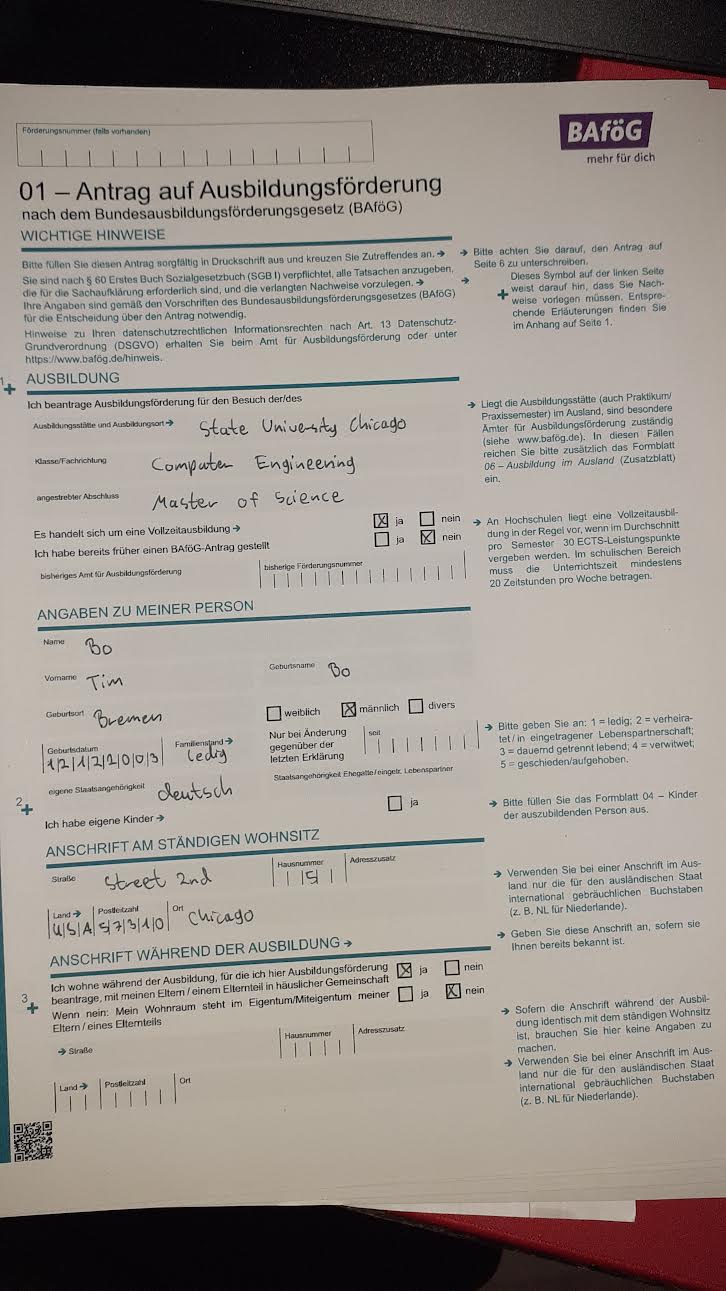 Förderungsnummer (falls vorhanden)
BAföG
mehr für dich
01 – Antrag auf Ausbildungsförderung
nach dem Bundesausbildungsförderungsgesetz (BAföG)
WICHTIGE HINWEISE
Bitte füllen Sie diesen Antrag sorgfältig in Druckschrift aus und kreuzen Sie Zutreffendes an. →
Sie sind nach § 60 Erstes Buch Sozialgesetzbuch (SGB I) verpflichtet, alle Tatsachen anzugeben,
die für die Sachaufklärung erforderlich sind, und die verlangten Nachweise vorzulegen. →
Ihre Angaben sind gemäß den Vorschriften des Bundesausbildungsförderungsgesetzes (BAföG)
für die Entscheidung über den Antrag notwendig.
Hinweise zu Ihren datenschutzrechtlichen Informationsrechten nach Art. 13 Datenschutz-
Grundverordnung (DSGVO) erhalten Sie beim Amt für Ausbildungsförderung oder unter
https://www.bafög.de/hinweis.
→ Bitte achten Sie darauf, den Antrag auf
Seite 6 zu unterschreiben.
→ Dieses Symbol auf der linken Seite
+ weist darauf hin, dass Sie Nach-
weise vorlegen müssen. Entspre-
chende Erläuterungen finden Sie
im Anhang auf Seite 1.
1 +
AUSBILDUNG
Ich beantrage Ausbildungsförderung für den Besuch der/des
Ausbildungsstätte und Ausbildungsort → State University Chicago
Klasse/Fachrichtung Computer Engineering
angestrebter Abschluss Master of Science
Es handelt sich um eine Vollzeitausbildung → X ja nein
Ich habe bereits früher einen BAföG-Antrag gestellt ja X nein
bisheriges Amt für Ausbildungsförderung bisherige Förderungsnummer
→ Liegt die Ausbildungsstätte (auch Praktikum/
Praxissemester) im Ausland, sind besondere
Ämter für Ausbildungsförderung zuständig
(siehe www.bafög.de). In diesen Fällen
reichen Sie bitte zusätzlich das Formblatt
06 – Ausbildung im Ausland (Zusatzblatt)
ein.
→ An Hochschulen liegt eine Vollzeitausbil-
dung in der Regel vor, wenn im Durchschnitt
pro Semester 30 ECTS-Leistungspunkte
vergeben werden. Im schulischen Bereich
muss die Unterrichtszeit mindestens
20 Zeitstunden pro Woche betragen.
ANGABEN ZU MEINER PERSON
Name Bo
Vorname Tim Geburtsname Bo
Geburtsort Bremen weiblich X männlich divers
Geburtsdatum 12122003 Familienstand → ledig
Nur bei Änderung
gegenüber der
letzten Erklärung
seit
eigene Staatsangehörigkeit deutsch Staatsangehörigkeit Ehegatte/eingetr. Lebenspartner
2 +
Ich habe eigene Kinder → ja
→ Bitte geben Sie an: 1 = ledig; 2 = verheira-
tet / in eingetragener Lebenspartnerschaft;
3 = dauernd getrennt lebend; 4 = verwitwet;
5 = geschieden/aufgehoben.
→ Bitte füllen Sie das Formblatt 04 – Kinder
der auszubildenden Person aus.
ANSCHRIFT AM STÄNDIGEN WOHNSITZ
Straße Street 2nd Hausnummer 15 Adresszusatz
Land → USA Postleitzahl 57310 Ort Chicago
→ Verwenden Sie bei einer Anschrift im Aus-
land nur die für den ausländischen Staat
international gebräuchlichen Buchstaben
(z. B. NL für Niederlande).
→ Geben Sie diese Anschrift an, sofern sie
Ihnen bereits bekannt ist.
ANSCHRIFT WÄHREND DER AUSBILDUNG →
Ich wohne während der Ausbildung, für die ich hier Ausbildungsförderung X ja nein
beantrage, mit meinen Eltern / einem Elternteil in häuslicher Gemeinschaft
3 +
Wenn nein: Mein Wohnraum steht im Eigentum/Miteigentum meiner ja X nein
Eltern / eines Elternteils
→ Straße Hausnummer Adresszusatz
Land → Postleitzahl Ort
→ Sofern die Anschrift während der Ausbil-
dung identisch mit dem ständigen Wohnsitz
ist, brauchen Sie hier keine Angaben zu
machen.
→ Verwenden Sie bei einer Anschrift im Aus-
land nur die für den ausländischen Staat
international gebräuchlichen Buchstaben
(z. B. NL für Niederlande).